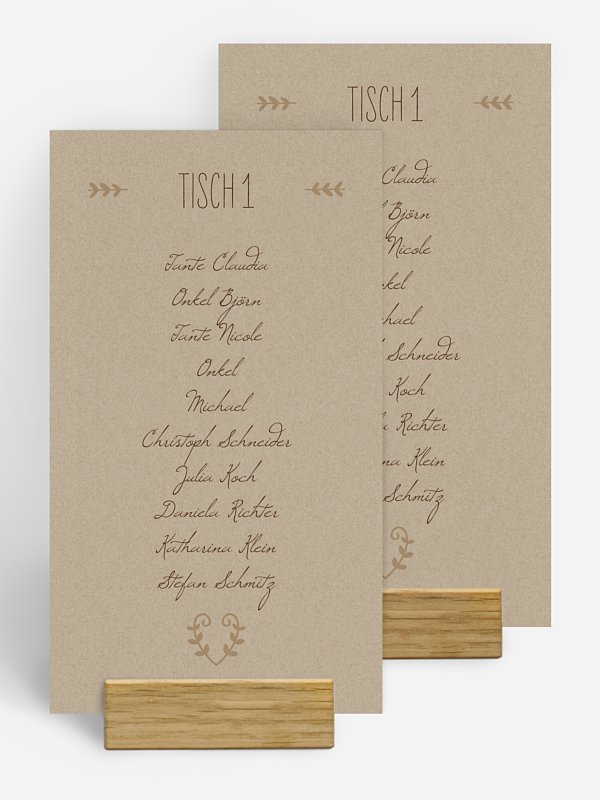 TISCH 1
Tante Claudia
Onkel Björn
Tante Nicole
Onkel
Michael
Christoph Schneider
Julia Koch
Daniela Richter
Katharina Klein
Stefan Schmitz
TISCH 1
Claudia
Björn
Nicole
Schneider
Koch
Richter
Klein
Schmitz